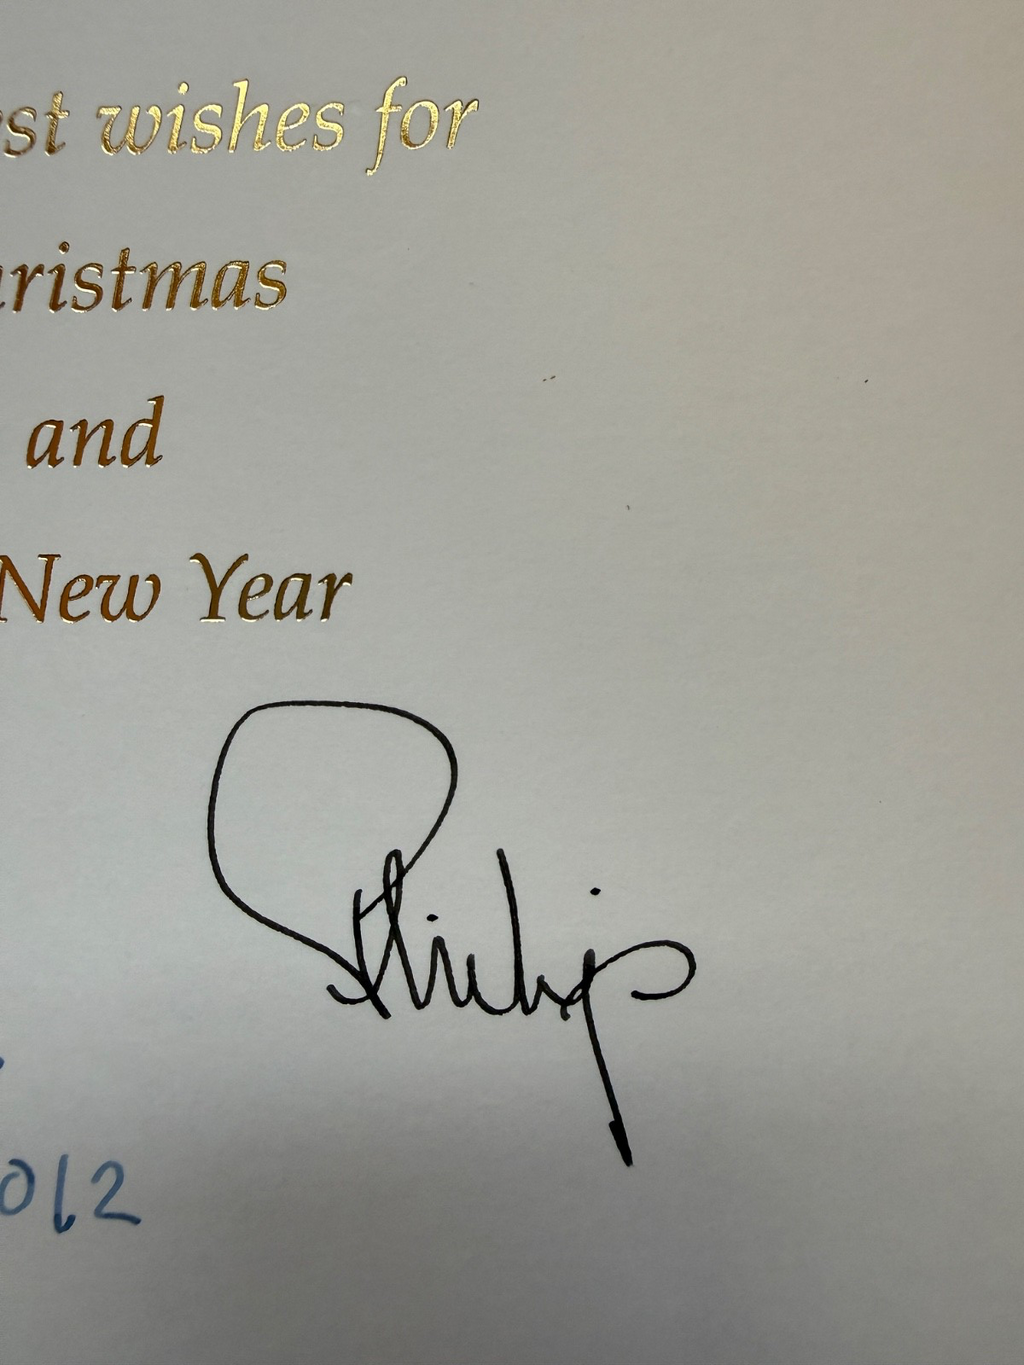 st wishes for
ristmas
and
New Year
Philip
012